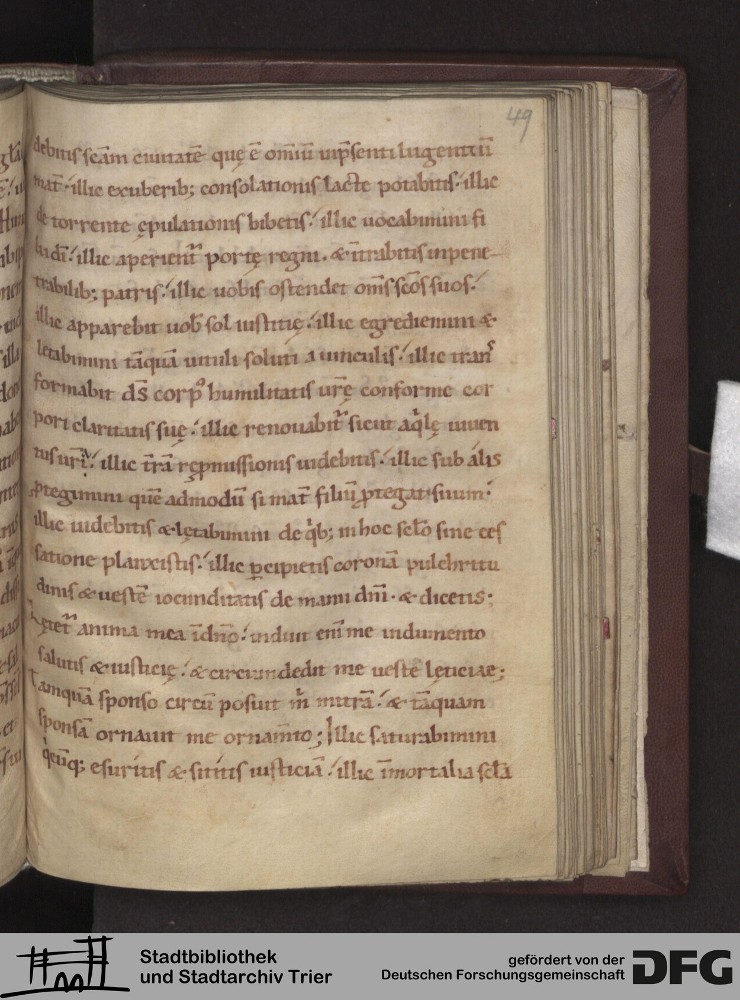 49
debitis scām ciuitatē quę ē omīu inp̄senti lugentiū
mat᷒ illic exuberib; consolationis lacte potabitis. illic
de torrente ępulationis bibetis. illic uocabimini fi
lii dī. illic aperient᷑ portę regni. & ītrabitis inpene-
trabilib; patris. illic uobis ostendet om̄s scōs suos.
illic apparebit uob̄ sol iustitię. illic egrediemini &
letabimini tāquā uituli soluti a uinculis. illic tran᷒
formabit ds̄ corp᷒ humilitatis urę̄ conforme cor
pori claritatis suę. illic renouabit᷑ sicut aq̇lę iuuen
tus urā. illic t̄rā ręp̱missionis uidebitis. illic sub ālis
ꝓtegimini quē admodū si mat᷒ filiū ꝓtegat suum.
illic uidebitis & lętabimini de q̇b; in hoc sclo̅ sine ces
satione planxistis. illic ꝑcipietis coronā pulchritu
dinis & uestē iocunditatis de manu dnī. & dicetis;
Lętet᷑ anima mea ī dn̄o. induit eni̅ me indumento
salutis & iusticię. & circumdedit me ueste lęticiae;
Tamquā sponso circū posuit m̄ mitrā. & tāquam
sponsā ornauit me ornam̄to; Illic saturabimini
q̇cūq; esuritis & sititis iusticiā. illic īmortalia scl̄a
Stadtbibliothek
und Stadtarchiv Trier
gefördert von der
Deutschen Forschungsgemeinschaft
DFG